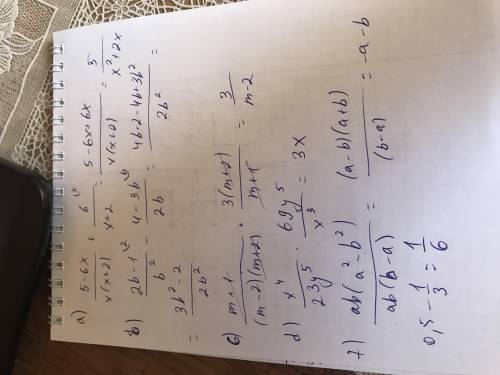 а) (5-6x)/(x(x+2)) + 6^{\x}/(x+2) = (5-6x+6x)/(x(x+2)) = 5/(x²+2x)
б) (2b-1^{\2})/b² - (4-3b^{\b})/2b = (4b-2-4b+3b²)/2b² =
= (3b²-2)/2b²
б) (m+1)/((m-2)(m+2)) · 3(m+2)/(m+1) = 3/(m-2)
d) x⁴/23y⁵ · 69y⁵/x³ = 3x
7) ab(a²-b²)/ab(b-a) = (a-b)(a+b)/(b-a) = -a-b
0,5 - 1/3 = 1/6